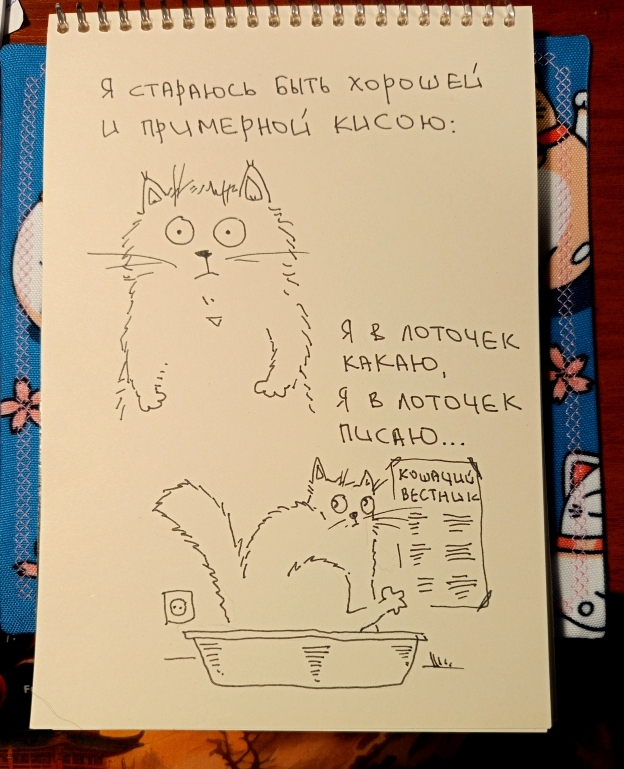 Я СТАРАЮСЬ БЫТЬ ХОРОШЕЙ
И ПРИМЕРНОЙ КИСОЮ:
Я В ЛОТОЧЕК
КАКАЮ,
Я В ЛОТОЧЕК
ПИСАЮ...
КОШАЧИЙ
ВЕСТНИК